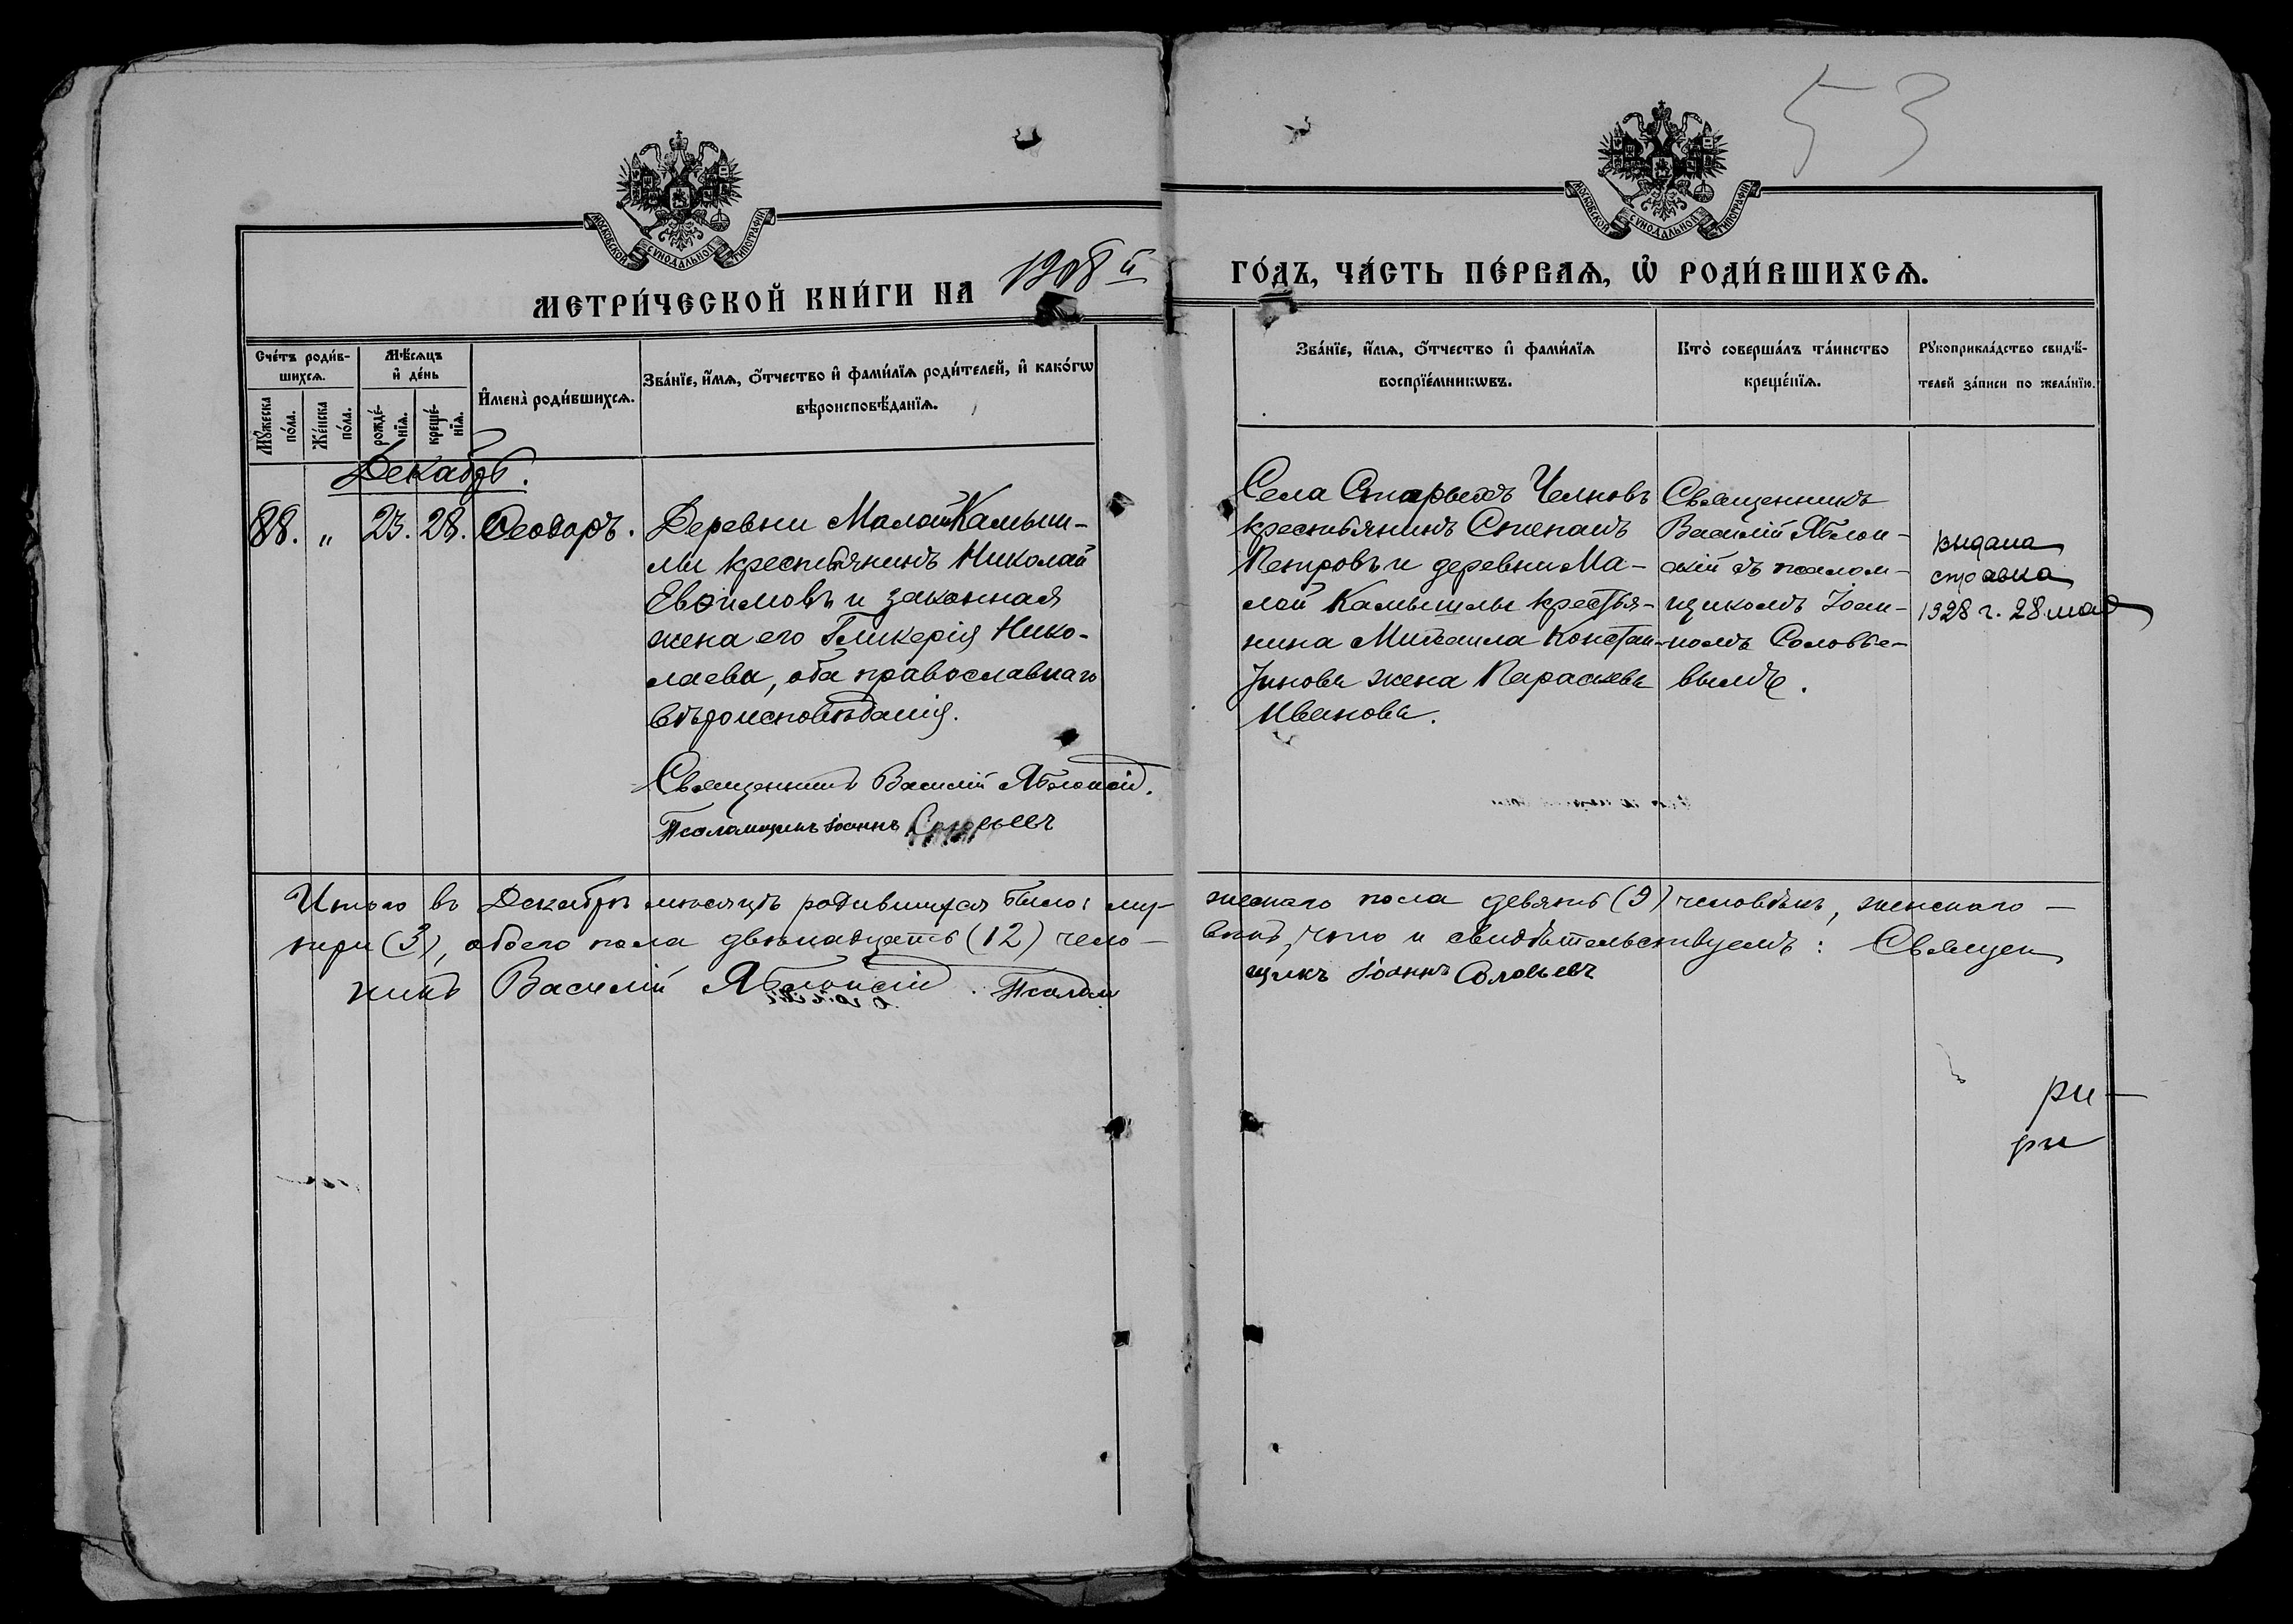 53
МОСКОВСКОЙ СУНОДАЛЬНОЙ ТИПОГРАФІИ
МОСКОВСКОЙ СУНОДАЛЬНОЙ ТИПОГРАФІИ
МЕТРИ́ЧЕСКОЙ КНИ́ГИ НА 1908 й ГО́ДЪ, ЧА́СТЬ ПЕ́РВАѦ, Ѡ҆ РОДИ́ВШИХСѦ.
Сче́тъ роди́в-
шихсѧ.
Мꙋ́жеска по́ла.
Же́нска по́ла.
Мѣ́сѧцъ
и҆ де́нь
рожде́-
нїѧ.
креще́-
нїѧ.
И҆мена̀ роди́вшихсѧ.
Зва́нїе, и҆́мѧ, ѻ҆́тчество и҆ фами́лїѧ роди́телей, и҆ како́гѡ
вѣроисповѣ́данїѧ.
Зва́нїе, и҆́мѧ, ѻ҆́тчество и҆ фами́лїѧ
воспрїе́мникѡвъ.
Кто̀ соверша́лъ та́инство
креще́нїѧ.
Рꙋкоприкла́дство свидѣ́-
телей за́писи по жела́нїю.
Декабрь.
88. " 23. 28. Ѳеодоръ.
Деревни Малой Камыш-
лы крестьянинъ Николай
Евѳимовъ и законная
жена его Гликерія Нико-
лаева, оба православнаго
вѣроисповѣданія.
Священникъ Василій Яблонскій.
Псаломщикъ Іоаннъ Соловьевъ
Села Старыхъ Челновъ
крестьянинъ Степанъ
Петровъ и деревни Ма-
лой Камышлы крестья-
нина Михаила Констан-
тинова жена Параскева
Иванова.
Священникъ
Василій Яблон-
скій съ псалом-
щикомъ Іоан-
номъ Соловье-
вымъ.
выдана
справка
1928 г. 28 мая
Итого въ Декабрѣ мѣсяцѣ родившихся было: му-
жескаго пола девять (9) человѣкъ, женскаго —
три (3), обоего пола двѣнадцать (12) чело-
вѣкъ, что и свидѣтельствуемъ: Священ
никъ Василій Яблонскій. Псалом
щикъ Іоаннъ Соловьевъ